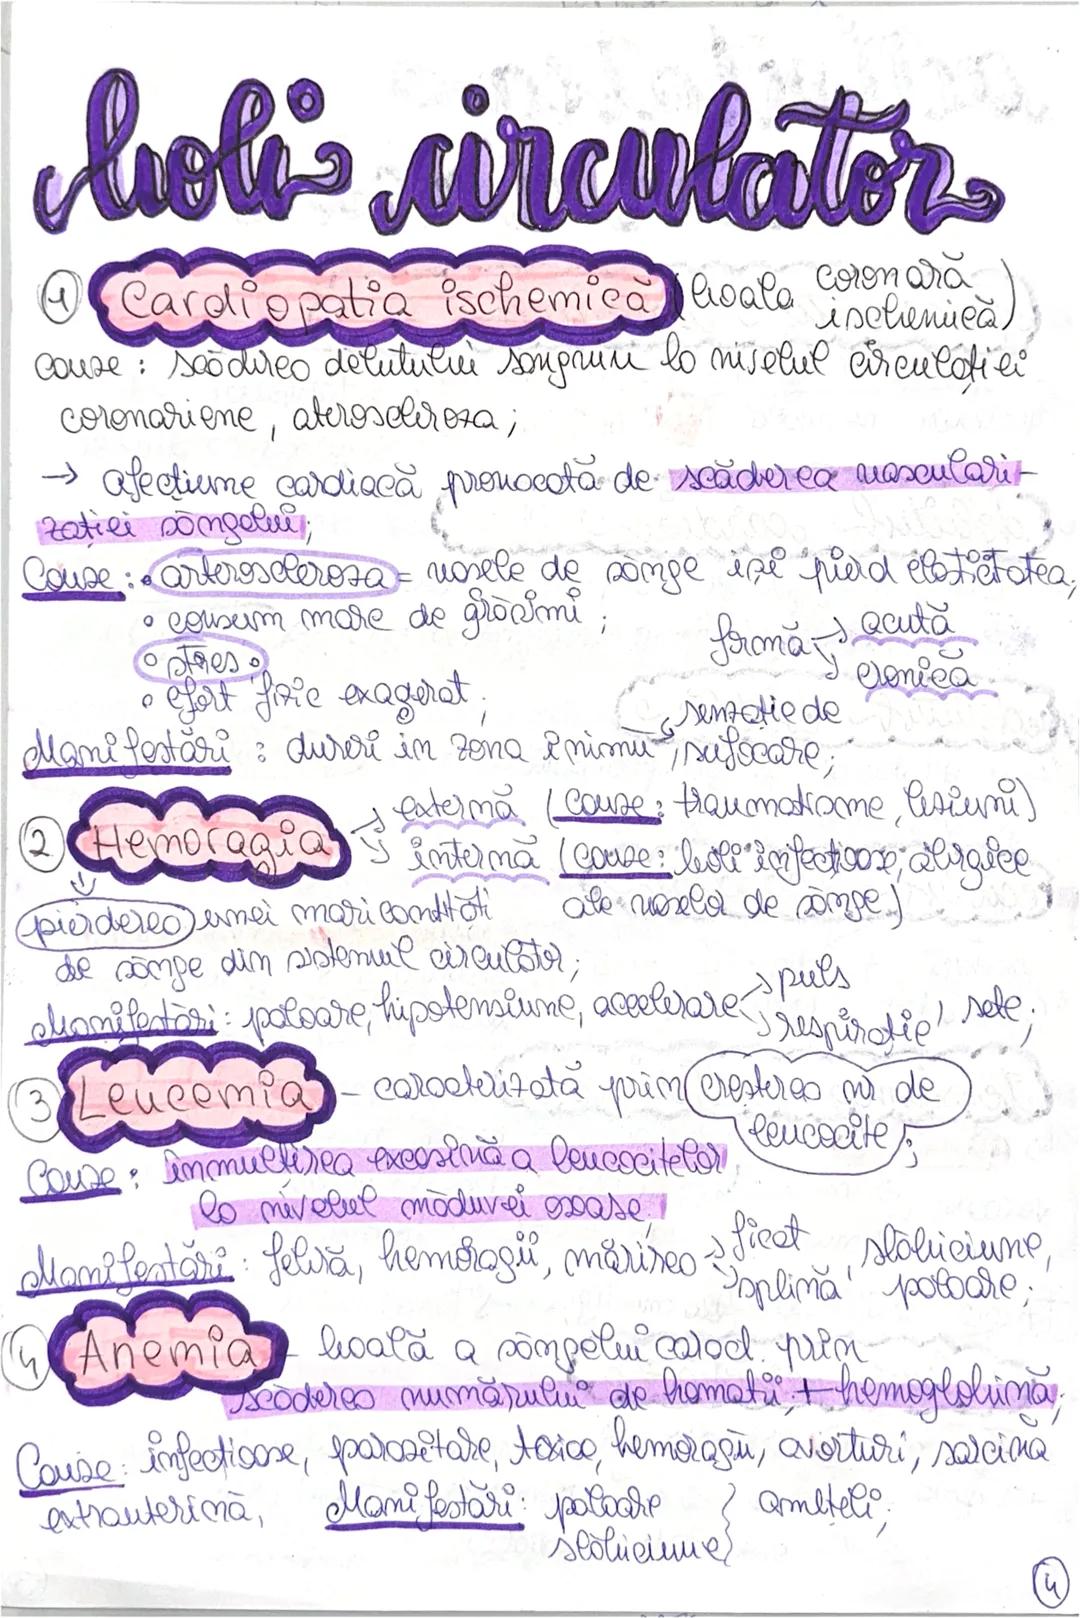 boli circulator
① Cardiopatia ischemică (boala coronară ischemică)
cauze : scăderea debitului sangvin la nivelul circulației
coronariene, ateroscleroza;
→ afecțiune cardiacă provocată de scăderea vasculari-
zației sângelui;
Cauze : • arteroscleroza = vasele de sânge își pierd elasticitatea,
• consum mare de grăsimi ;
formă → acută
• stres •
→ cronică
• efort fizic exagerat ;
Manifestări : dureri in zona inimii, senzație de sufocare;
② Hemoragia → externă (cauze : traumatisme, lesiuni)
→ internă (cauze : boli infecțioase, alergice
pierderea unei mari cantități ale vaselor de sânge)
de sânge din sistemul circulator;
Manifestări : paloare, hipotensiune, accelerare → puls → respirație, sete;
③ Leucemia - caracterizată prin creșterea nr de
leucocite;
Cauze : înmulțirea excesivă a leucocitelor
la nivelul măduvei osoase;
Manifestări : febră, hemoragii, mărirea → ficat → splină, slăbiciune, paloare;
④ Anemia - boală a sângelui caract. prin
scăderea numărului de hematii + hemoglobină;
Cauze : infecțioase, parazitare, toxice, hemoragii, avorturi, sarcină
extrauterină, Manifestări : paloare } amețeli;
slăbiciune }
④